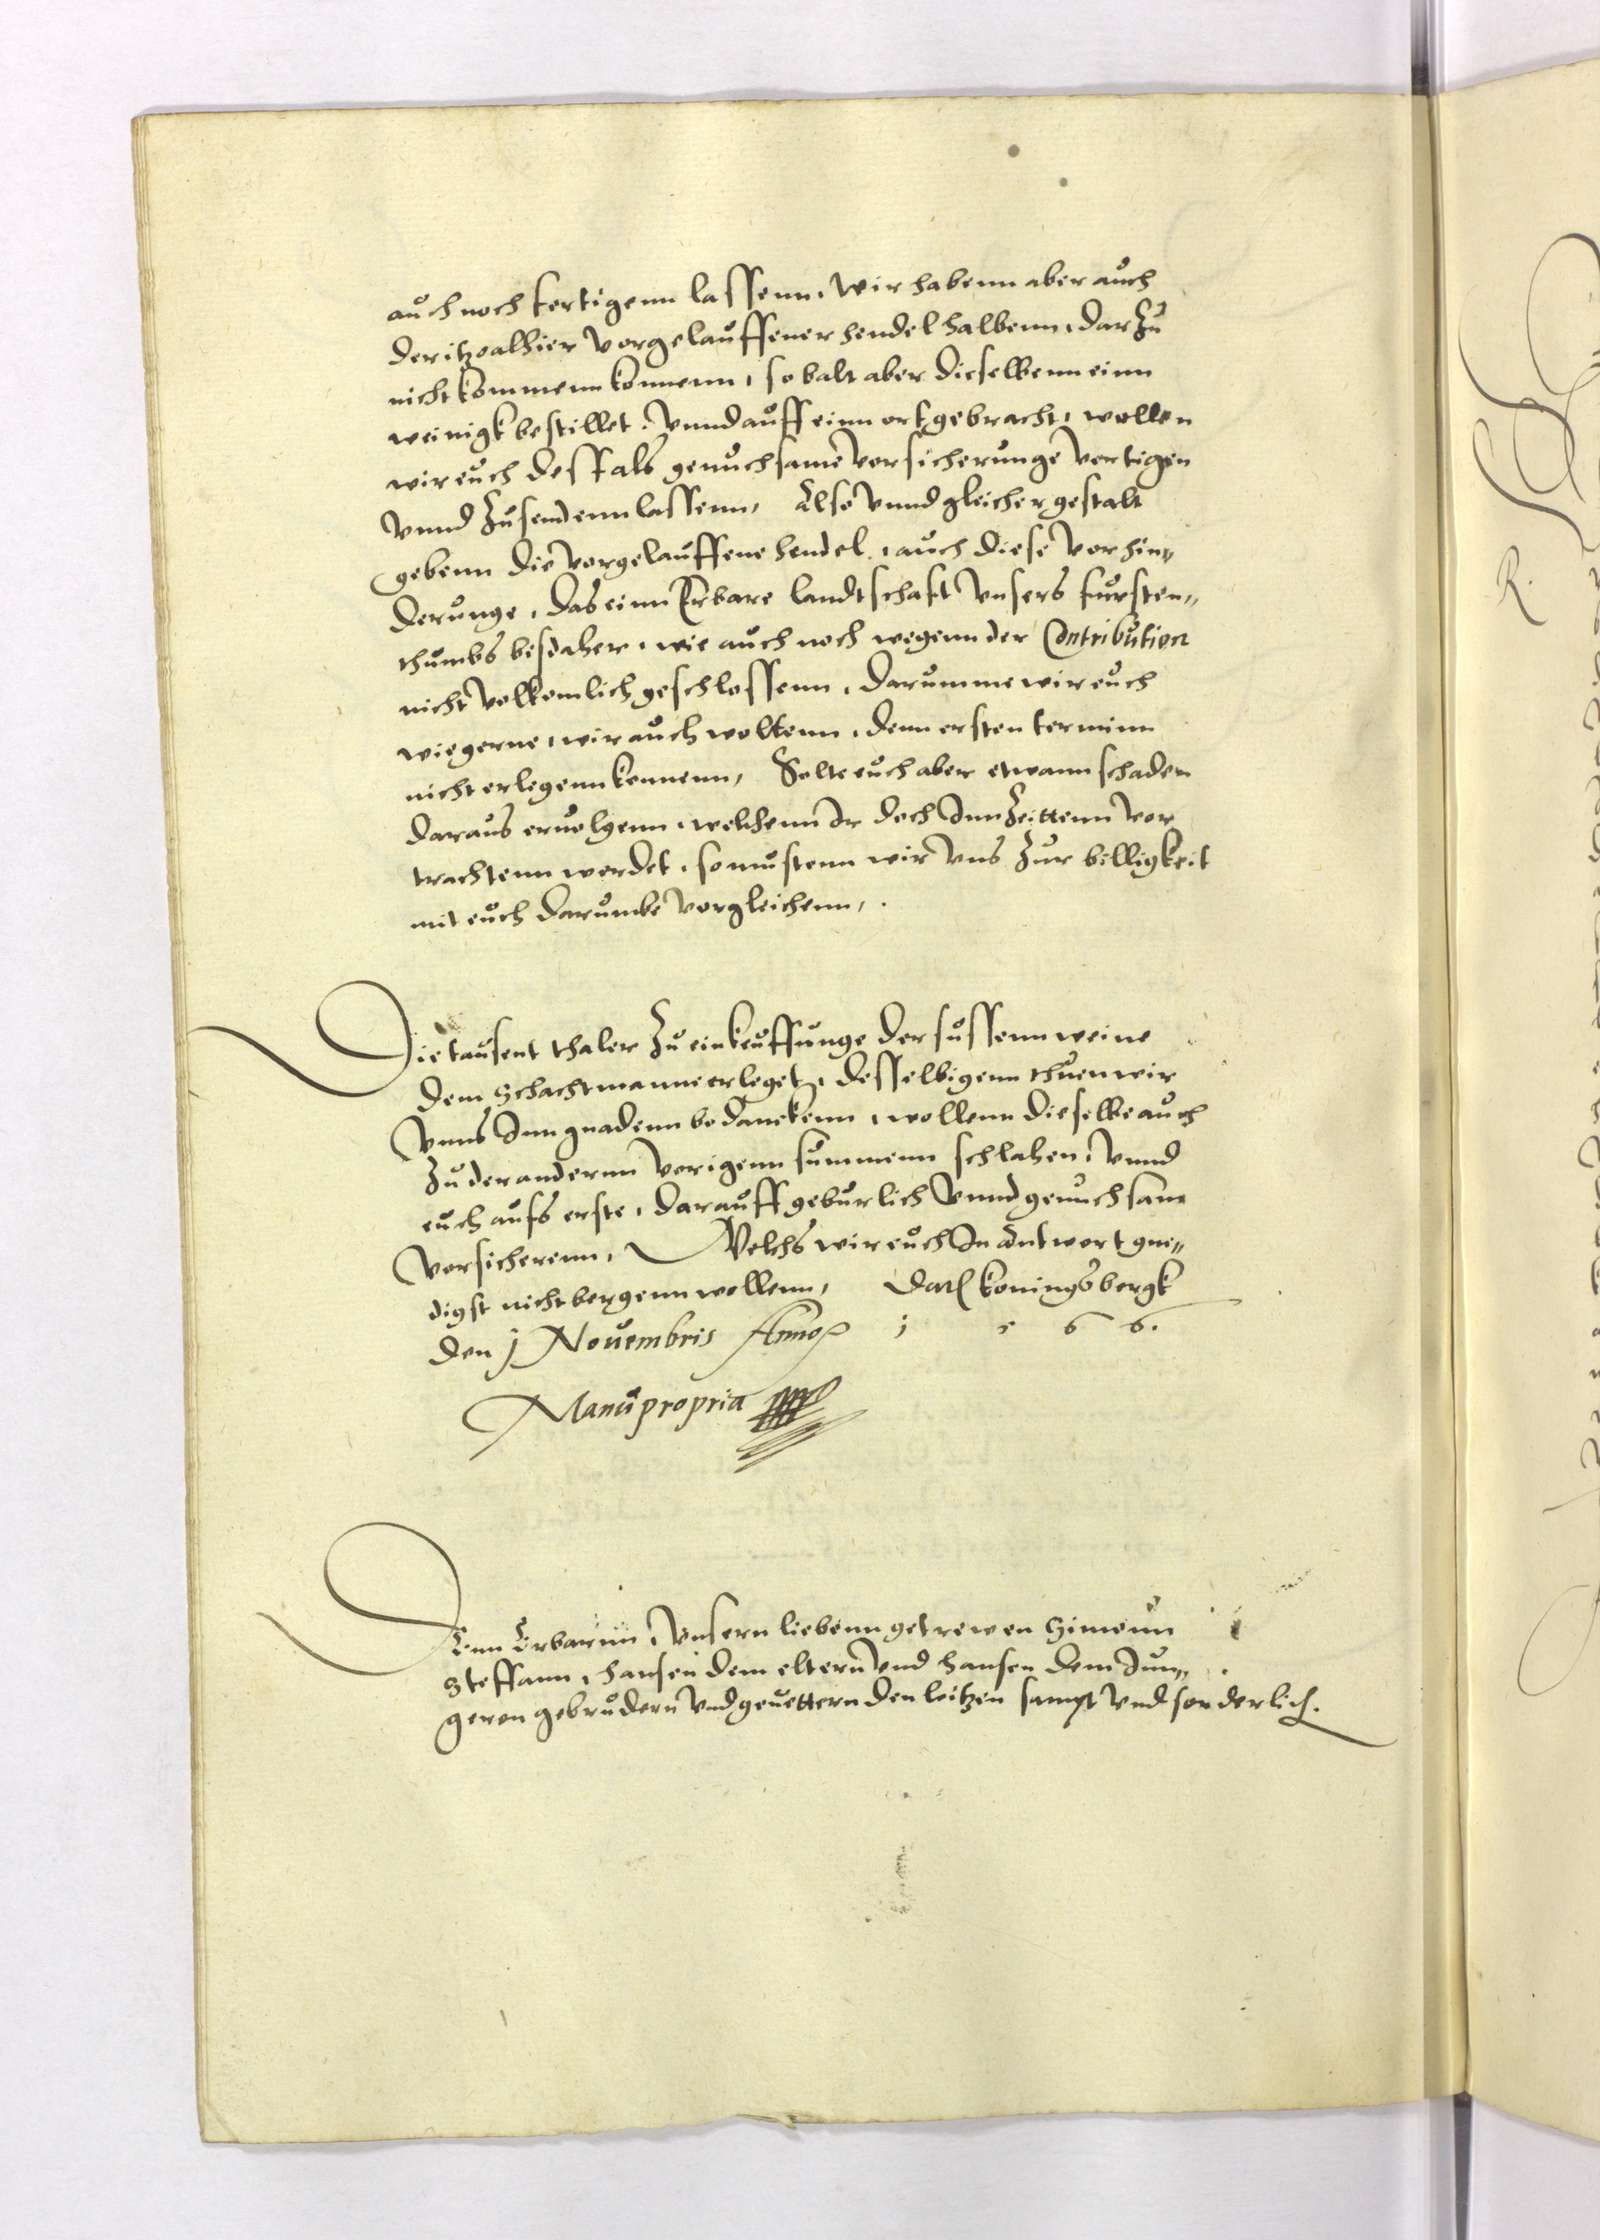 auch noch fertigenn lassenn, wir habenn aber auch
der itzo alhier vorgelauffener hendel halbenn, dar zu
nicht kommenn konnenn, so balt aber dieselbenn einn
weinigk bestillet, vnnd auff einn ort gebracht, wollen
wir euch desfals genuchsame vorsicherunge vertigen
vnnd zusendenn lassenn, Also vnnd gleicher gestalt
gebenn die vorgelauffene hendel, auch diese vorhin„
derunge, das einn Erbare landtschaft vnsers fursten„
thumbs bisdaher, wie auch noch wegenn der Contribution
nicht volkomlich geschlossenn, darumme wir euch
wie gerne, wir auch woltenn, denn ersten terminn
nicht erlegenn konnenn, Solte euch aber etwann schaden
daraus eruolgenn, welchenn Ir doch Inn Zeittenn vor
trachtenn werdet, so mustenn wir vns zur billigkeit
mit euch darumbe vorgleichenn,.
Die tausent thaler zu einkeuffunge der sussenn weine
dem Schachtmanne erleget, desselbigenn thuen wir
vnns Inn gnadenn bedanckenn, wollenn dieselbe auch
zu der andernn vorigenn summenn schlahen, vnnd
euch aufs erste, darauff geburlich vnnd genuchsam
vorsicherenn, Welchs wir euch In Antwort gne„
digst nicht bergenn wollenn, Datl koningsbergk
den j Novembris Anno 1 5 6 6.
Manu propria
Denn Erbarnn, vnsern liebenn getrewen Simeun
Steffann, hansen dem eltern vnd hansen dem Jun„
geren gebrudern vnd geuettern den loitzen sampt vnd sonderlich.
R.